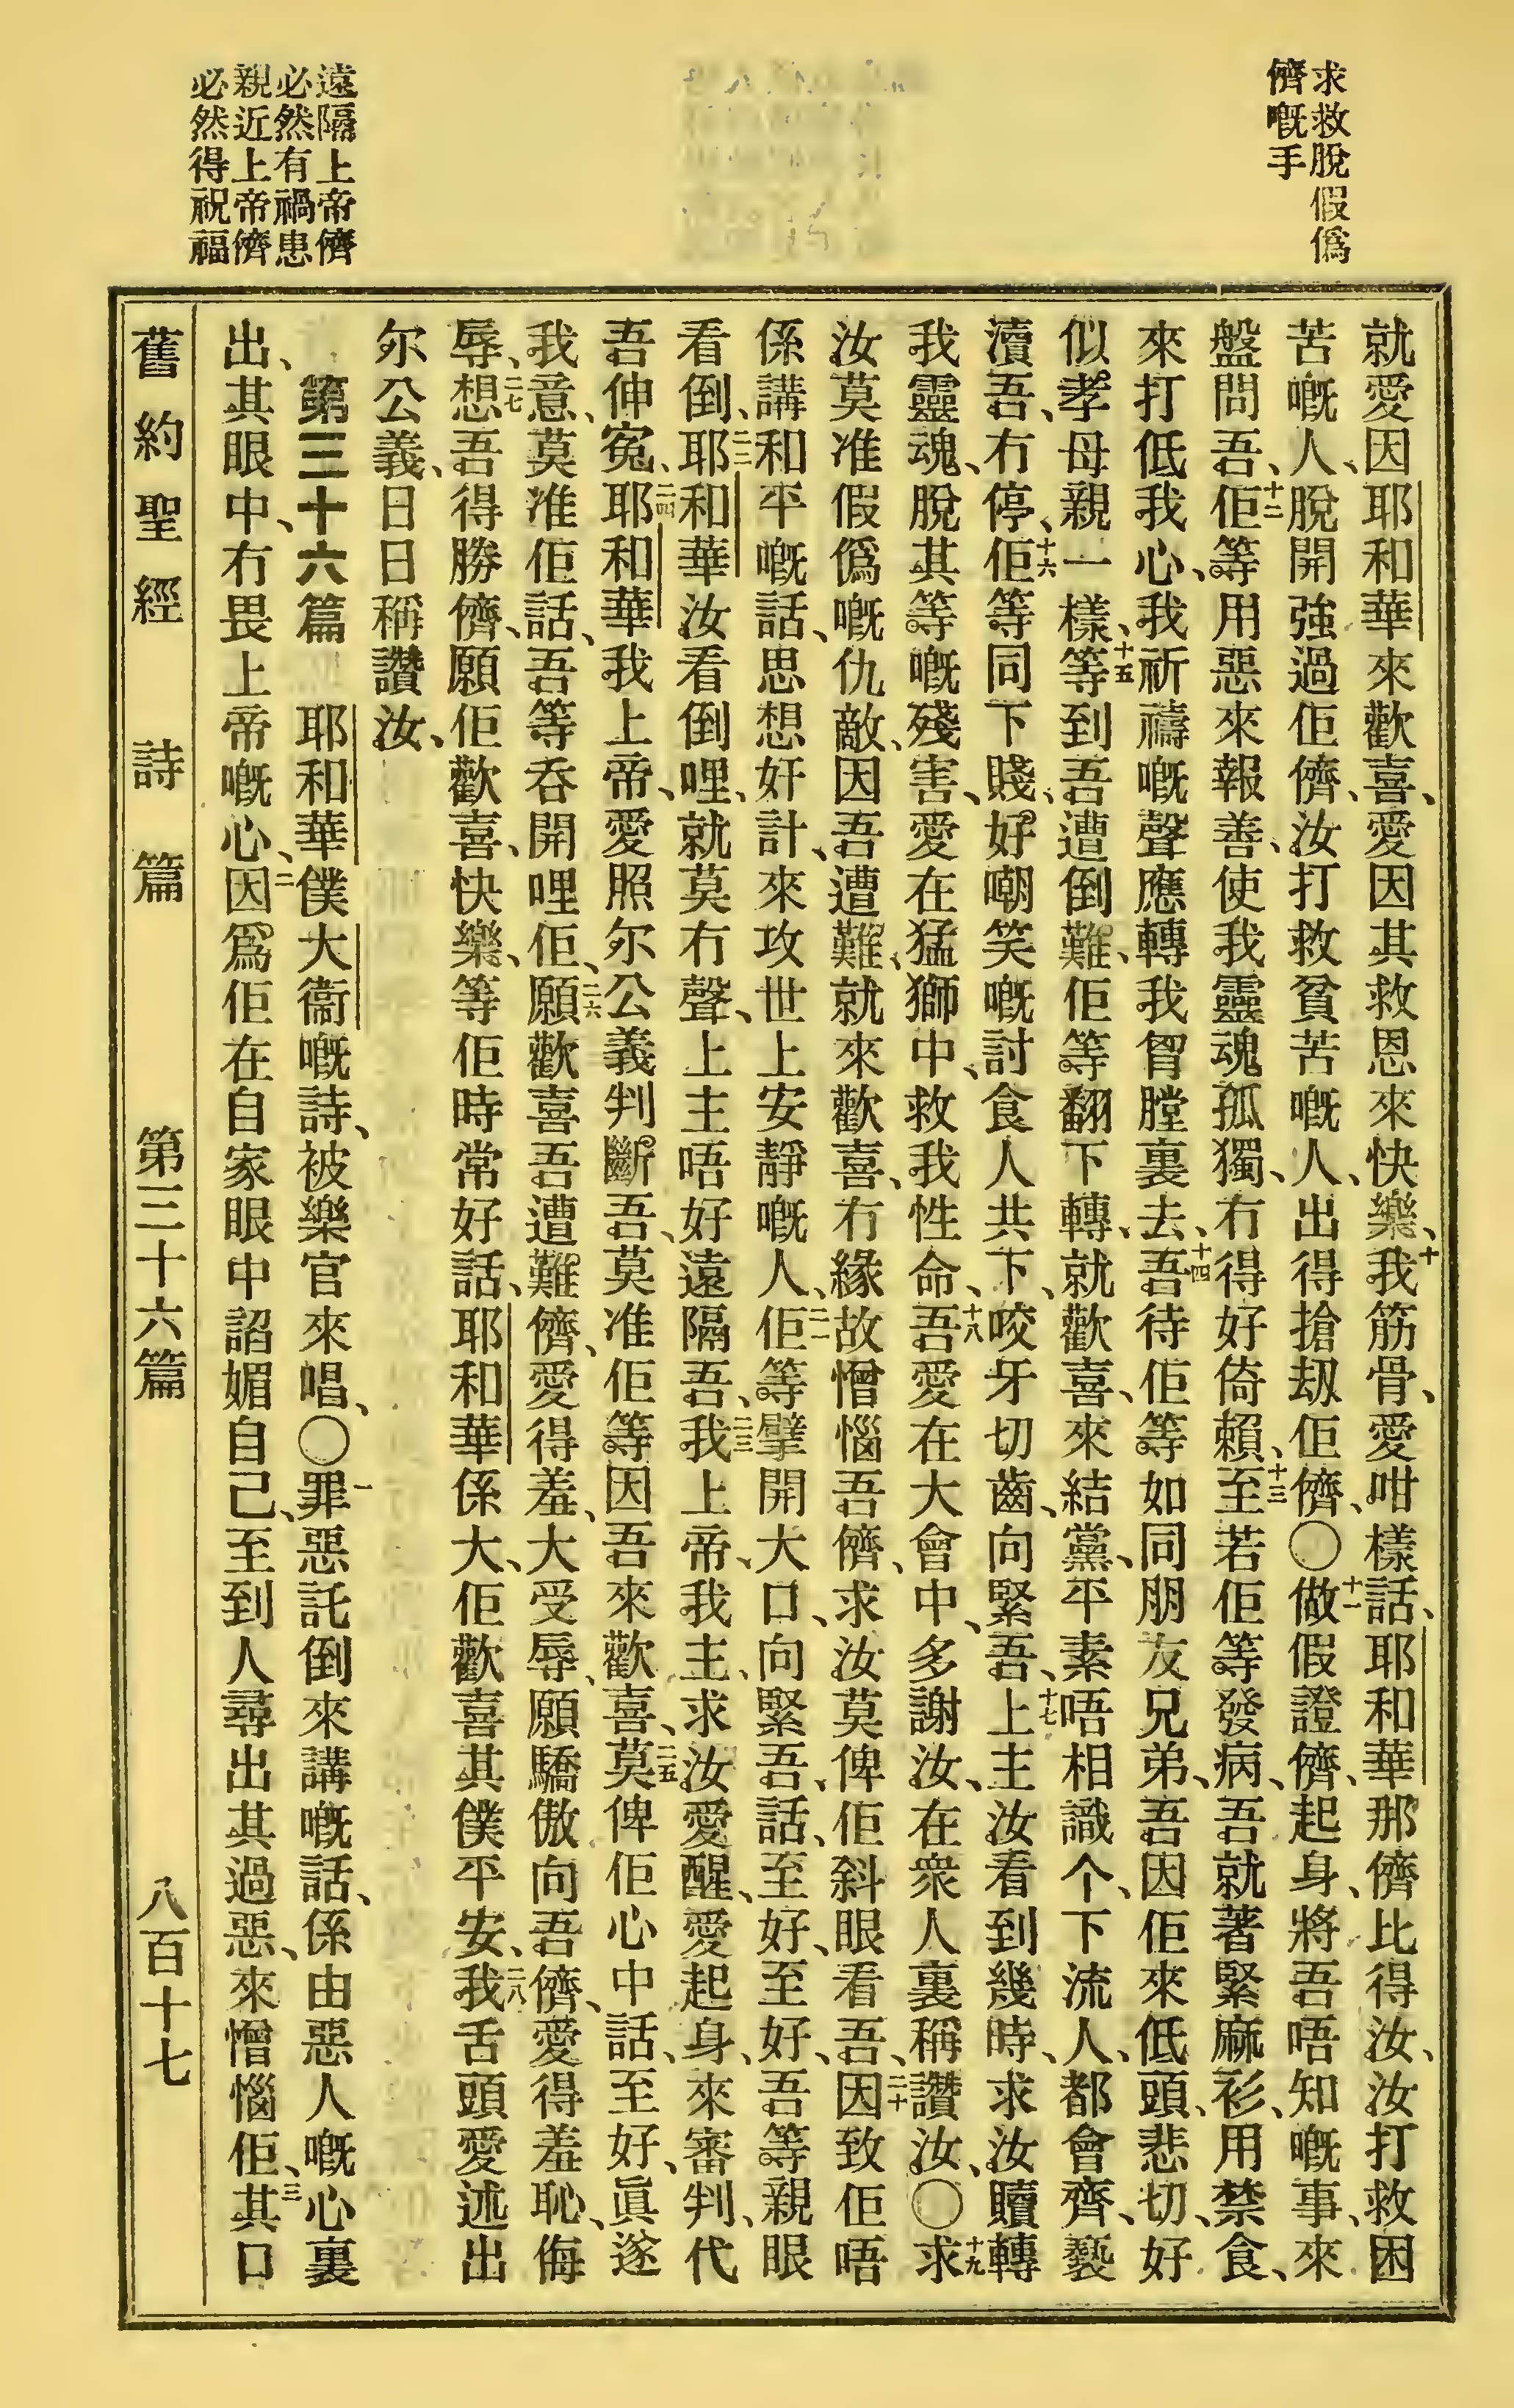 求救脫假僞
儕嘅手
遠隔上帝儕
必然有禍患
親近上帝儕
必然得祝福
就愛因耶和華來歡喜、愛因其救恩來快樂、十我筋骨、愛咁樣話、耶和華那儕比得汝、汝打救困
苦嘅人、脫開強過佢儕、汝打救貧苦嘅人、出得搶刼佢儕、〇十一做假證儕、起身、將吾唔知嘅事、來
盤問吾、十二佢等用惡來報善、使我靈魂孤獨、冇得好倚賴、十三至若佢等發病、吾就著緊麻衫、用禁食、
來打低我心、我祈禱嘅聲應轉我胷膛裏去、十四吾待佢等如同朋友兄弟、吾因佢來低頭、悲切、好
似孝母親一樣、十五等到吾遭倒難、佢等翻下轉、就歡喜、來結黨、平素唔相識个、下流人、都會齊、褻
瀆吾、冇停、十六佢等同下賤、好嘲笑嘅討食人共下、咬牙切齒、向緊吾、十七上主汝看到幾時、求汝贖轉
我靈魂、脫其等嘅殘害、愛在猛獅中、救我性命、十八吾愛在大會中、多謝汝、在衆人裏稱讚汝、〇十九求
汝莫准假僞嘅仇敵、因吾遭難、就來歡喜、冇緣故憎惱吾儕、求汝莫俾佢斜眼看吾、二十因致佢唔
係講和平嘅話、思想奸計、來攻世上安靜嘅人、二一佢等擘開大口、向緊吾、話、至好、至好、吾等親眼
看倒、二二耶和華汝看倒哩、就莫冇聲、上主唔好遠隔吾、二三我上帝、我主、求汝愛醒、愛起身、來審判、代
吾伸寃、二四耶和華我上帝、愛照尔公義判斷吾、莫准佢等因吾來歡喜、二五莫俾佢心中話、至好、眞遂
我意、莫准佢話、吾等呑開哩佢、二六願歡喜吾遭難儕、愛得羞、大受辱、願驕傲向吾儕、愛得羞恥、侮
辱、二七想吾得勝儕、願佢歡喜、快樂、等佢時常好話、耶和華係大、佢歡喜其僕平安、二八我舌頭愛述出
尔公義、日日稱讚汝、
第三十六篇　耶和華僕大衞嘅詩、被樂官來唱、〇一罪惡託倒來講嘅話、係由惡人嘅心裏
出、其眼中、冇畏上帝嘅心、二因爲佢在自家眼中諂媚自己、至到人尋出其過惡、來憎惱佢、三其口
舊約聖經　詩篇　第三十六篇　八百十七